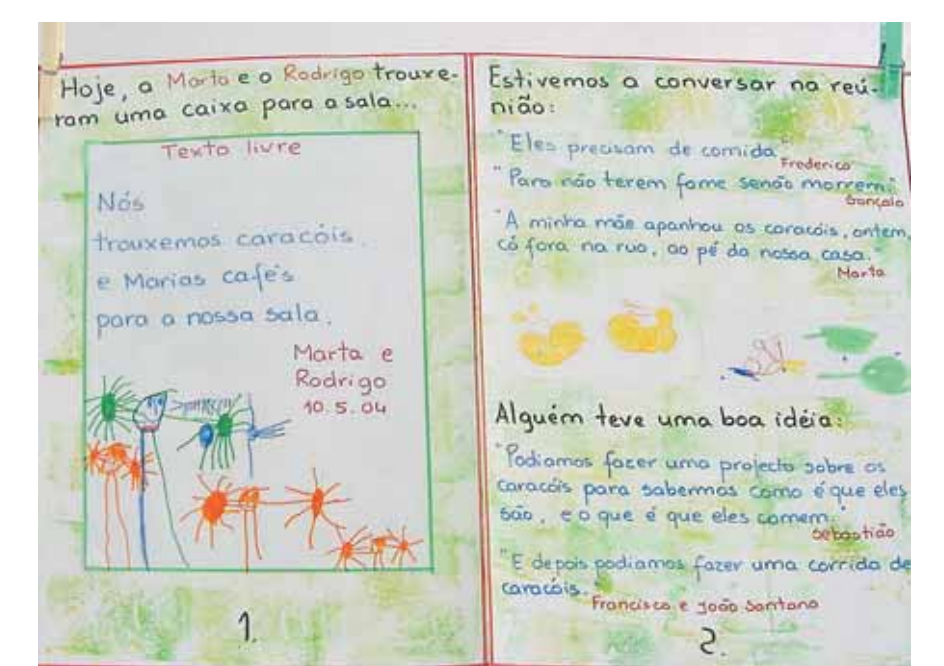 Hoje, a Marta e o Rodrigo trouxe-
ram uma caixa para a sala...
Texto livre
Nós
trouxemos caracóis.
e Marias cafés
para a nossa sala.
Marta e
Rodrigo
10.5.04
1.
Estivemos a conversar na reú-
nião:
"Eles precisam de comida"
Frederico
"Para não terem fome senão morrem."
Gonçalo
"A minha mãe apanhou os caracóis, ontem,
cá fora na rua, ao pé da nossa casa."
Marta
Alguém teve uma boa idéia:
"Podiamos fazer uma projecto sobre os
caracóis para sabermos como é que eles
são, e o que é que eles comem."
Sebastião
"E depois podiamos fazer uma corrida de
caracóis."
Francisco e João Santana
2.